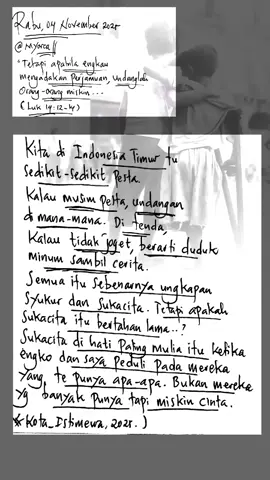 Rabu, 04 November 2025
@Myarea
"Tetapi apabila engkau
mengadakan perjamuan, undanglah
orang-orang miskin...
(Luk 14:12-14)
Kita di Indonesia Timur tu
sedikit-sedikit pesta.
Kalau musim pesta, undangan
di mana-mana. Di tenda,
Kalau tidak joget, berarti duduk
minum sambil cerita.
Semua itu sebenarnya ungkapan
syukur dan sukacita. Tetapi apakah
sukacita itu bertahan lama..?
Sukacita di hati paling mulia itu ketika
engko dan saya peduli pada mereka
yang te punya apa-apa. Bukan mereka
yg banyak punya tapi miskin cinta.
*Kota_Istimewa, 2025.)